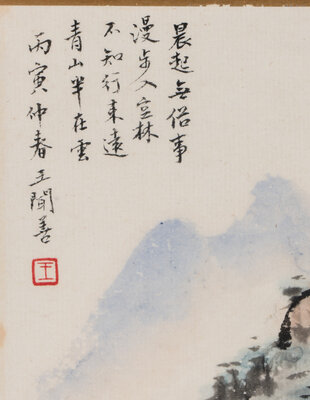 晨起無俗事
漫步入空林
不知行来遠
青山半在雲
丙寅仲春王聞善
王